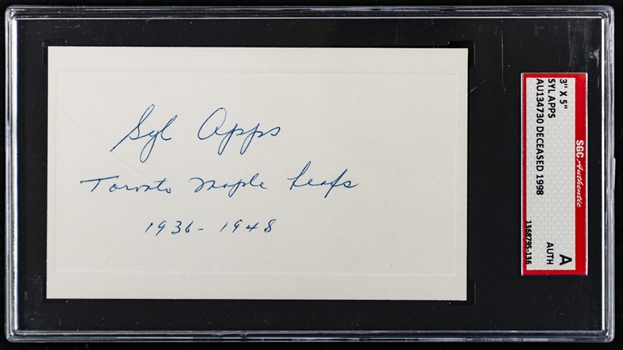 Syl Apps
Toronto Maple Leafs
1936-1948
3" X 5"
SYL APPS
AU134730 DECEASED 1998
SGC Authentic
A
AUTH
1168795-116